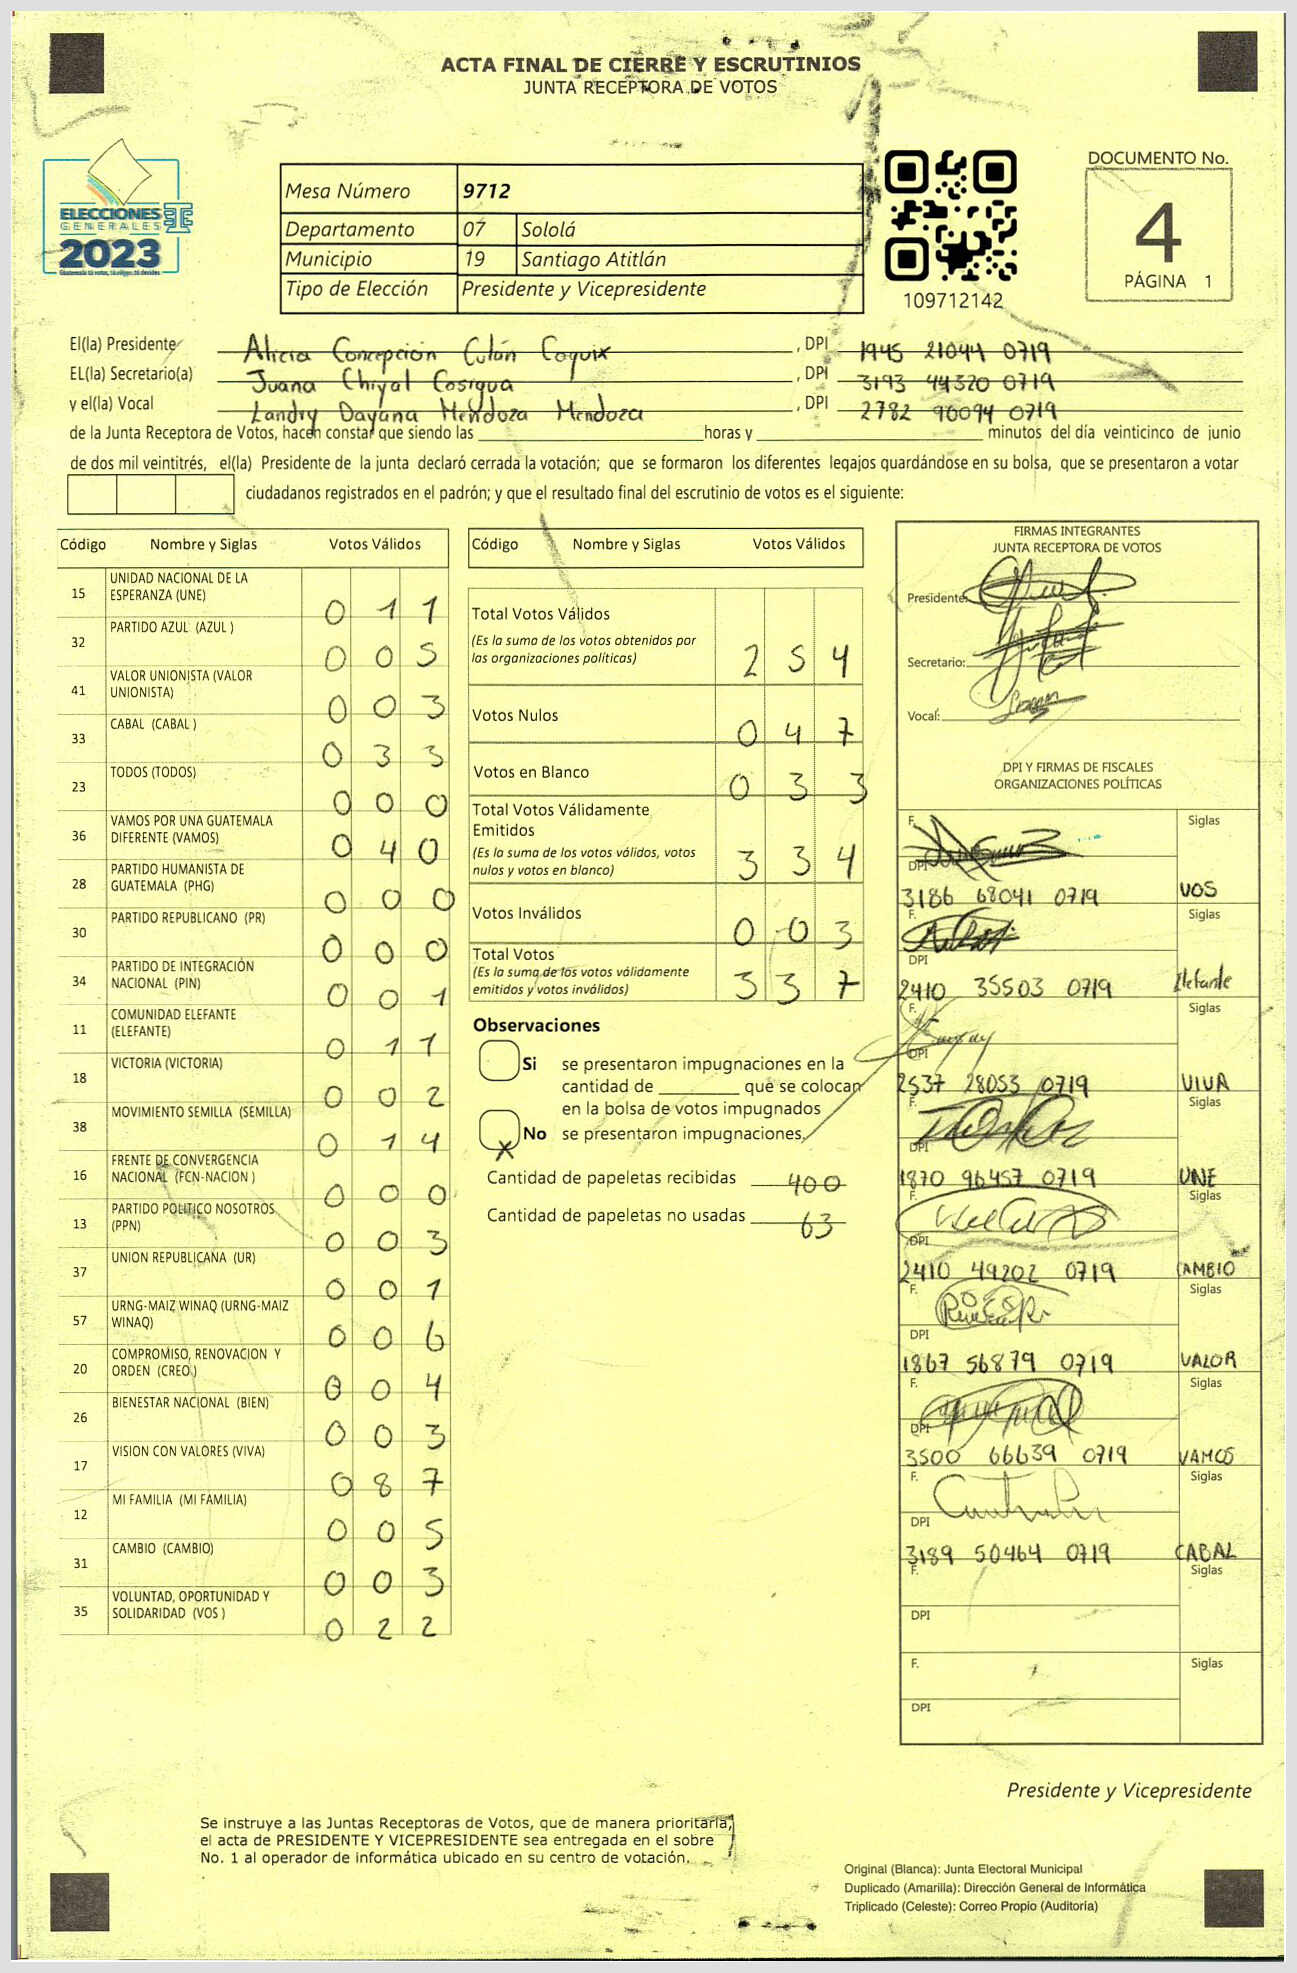 ACTA FINAL DE CIERRE Y ESCRUTINIOS
JUNTA RECEPTORA DE VOTOS
ELECCIONES
GENERALES
2023
Mesa Número 9712
Departamento 07 Sololá
Municipio 19 Santiago Atitlán
Tipo de Elección Presidente y Vicepresidente
109712142
DOCUMENTO No.
4
PÁGINA 1
El(la) Presidente Alicia Concepción Culán Coquix, DPI 1945 21044 0719
EL(la) Secretario(a) Juana Chiyal Cosigua, DPI 3193 44320 0719
y el(la) Vocal Landry Dayana Mendoza Mendoza, DPI 2782 90094 0719
de la Junta Receptora de Votos, hacen constar que siendo las horas y minutos del día veinticinco de junio
de dos mil veintitrés, el(la) Presidente de la junta declaró cerrada la votación; que se formaron los diferentes legajos guardándose en su bolsa, que se presentaron a votar
ciudadanos registrados en el padrón; y que el resultado final del escrutinio de votos es el siguiente:
Código Nombre y Siglas Votos Válidos
15 UNIDAD NACIONAL DE LA ESPERANZA (UNE) 0 1 1
32 PARTIDO AZUL (AZUL ) 0 0 5
41 VALOR UNIONISTA (VALOR UNIONISTA) 0 0 3
33 CABAL (CABAL ) 0 3 3
23 TODOS (TODOS) 0 0 0
36 VAMOS POR UNA GUATEMALA DIFERENTE (VAMOS) 0 4 0
28 PARTIDO HUMANISTA DE GUATEMALA (PHG) 0 0 0
30 PARTIDO REPUBLICANO (PR) 0 0 0
34 PARTIDO DE INTEGRACIÓN NACIONAL (PIN) 0 0 1
11 COMUNIDAD ELEFANTE (ELEFANTE) 0 1 1
18 VICTORIA (VICTORIA) 0 0 2
38 MOVIMIENTO SEMILLA (SEMILLA) 0 1 4
16 FRENTE DE CONVERGENCIA NACIONAL (FCN-NACION ) 0 0 0
13 PARTIDO POLITICO NOSOTROS (PPN) 0 0 3
37 UNION REPUBLICANA (UR) 0 0 1
57 URNG-MAIZ WINAQ (URNG-MAIZ WINAQ) 0 0 6
20 COMPROMISO, RENOVACION Y ORDEN (CREO ) 0 0 4
26 BIENESTAR NACIONAL (BIEN) 0 0 3
17 VISION CON VALORES (VIVA) 0 8 7
12 MI FAMILIA (MI FAMILIA) 0 0 5
31 CAMBIO (CAMBIO) 0 0 3
35 VOLUNTAD, OPORTUNIDAD Y SOLIDARIDAD (VOS ) 0 2 2
Código Nombre y Siglas Votos Válidos
Total Votos Válidos
(Es la suma de los votos obtenidos por
las organizaciones políticas) 2 5 4
Votos Nulos 0 4 7
Votos en Blanco 0 3 3
Total Votos Válidamente
Emitidos
(Es la suma de los votos válidos, votos
nulos y votos en blanco) 3 3 4
Votos Inválidos 0 0 3
Total Votos
(Es la suma de los votos válidamente
emitidos y votos inválidos) 3 3 7
Observaciones
Si se presentaron impugnaciones en la
cantidad de que se colocan
en la bolsa de votos impugnados
X No se presentaron impugnaciones.
Cantidad de papeletas recibidas 400
Cantidad de papeletas no usadas 63
FIRMAS INTEGRANTES
JUNTA RECEPTORA DE VOTOS
Presidente:
Secretario:
Vocal:
DPI Y FIRMAS DE FISCALES
ORGANIZACIONES POLÍTICAS
F. Siglas
DPI
3186 68041 0719 VOS
F. Siglas
DPI
2410 35503 0719 Elefante
F. Siglas
DPI
2537 28053 0719 VIVA
F. Siglas
DPI
1870 96457 0719 UNE
F. Siglas
DPI
2410 49202 0719 CAMBIO
F. Siglas
DPI
1867 56879 0719 VALOR
F. Siglas
DPI
3500 66639 0719 VAMOS
F. Siglas
DPI
3189 50464 0719 CABAL
F. Siglas
DPI
F. Siglas
DPI
Presidente y Vicepresidente
Se instruye a las Juntas Receptoras de Votos, que de manera prioritaria,
el acta de PRESIDENTE Y VICEPRESIDENTE sea entregada en el sobre
No. 1 al operador de informática ubicado en su centro de votación.
Original (Blanca): Junta Electoral Municipal
Duplicado (Amarilla): Dirección General de Informática
Triplicado (Celeste): Correo Propio (Auditoría)